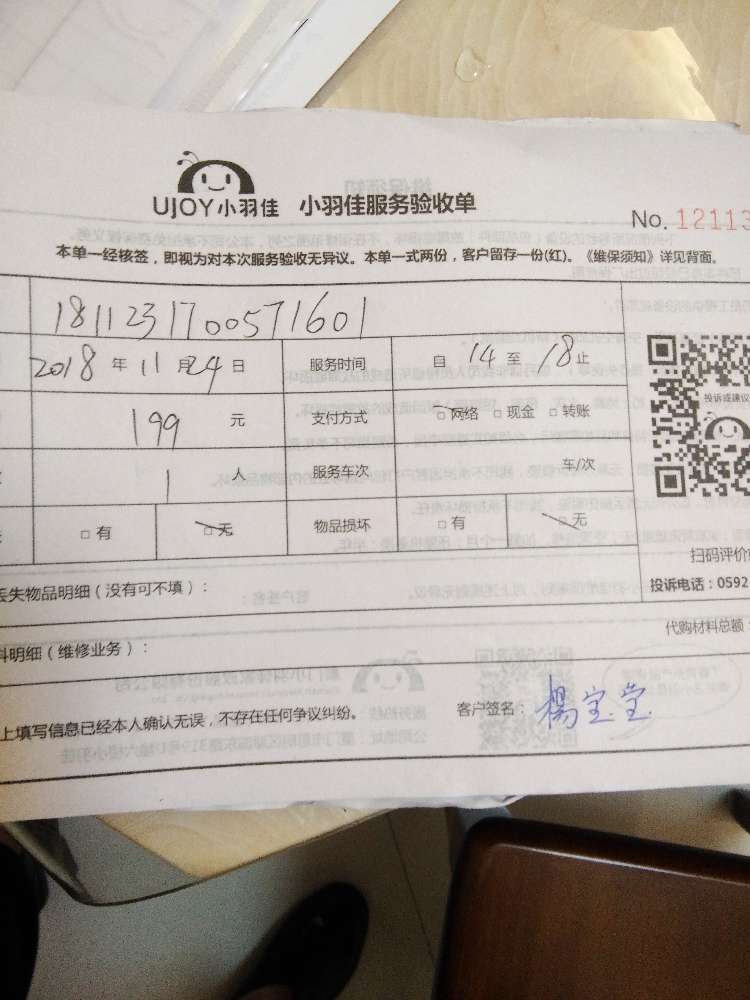 UJOY小羽佳 小羽佳服务验收单
No. 12113
本单一经核签，即视为对本次服务验收无异议。本单一式两份，客户留存一份(红)。《维保须知》详见背面。
1811231700571601
2018 年 11 月 24 日 服务时间 自 14 至 18 止
投诉或建议
199 元 支付方式 □ 网络 □ 现金 □ 转账
1 人 服务车次 车/次
□ 有 □ 无 物品损坏 □ 有 □ 无
扫码评价
丢失物品明细（没有可不填）：
投诉电话：0592
料明细（维修业务）：
代购材料总额：
上填写信息已经本人确认无误，不存在任何争议纠纷。
客户签名：楊宝堂